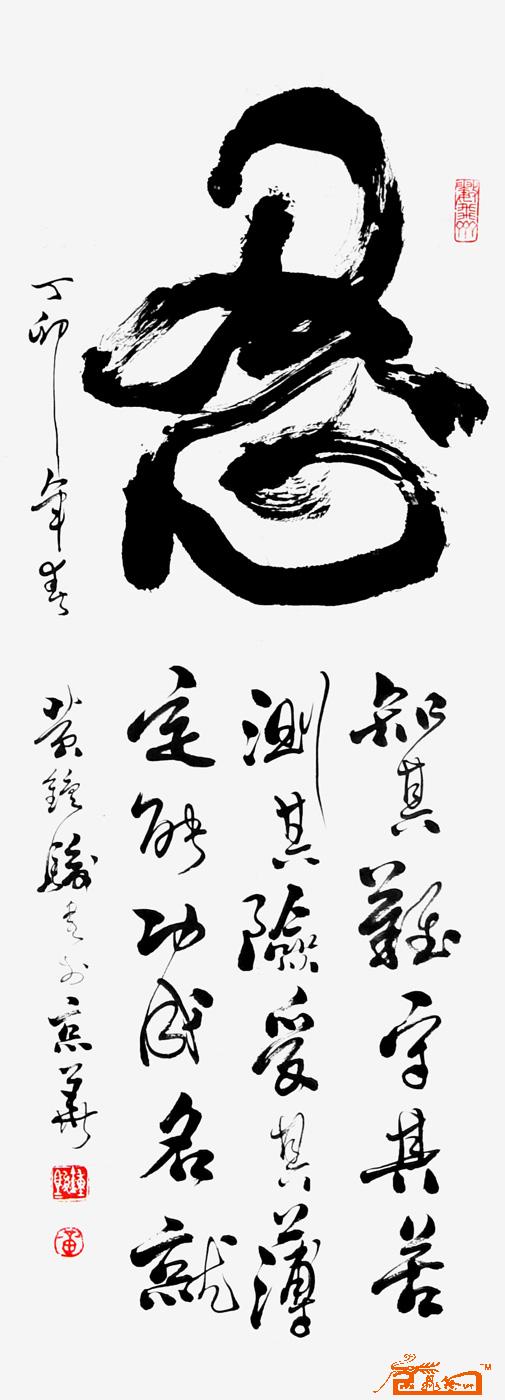 知其難守其苦
測其險受其薄
定能功成名就
丁卯年春
黄鐘駿書於京華